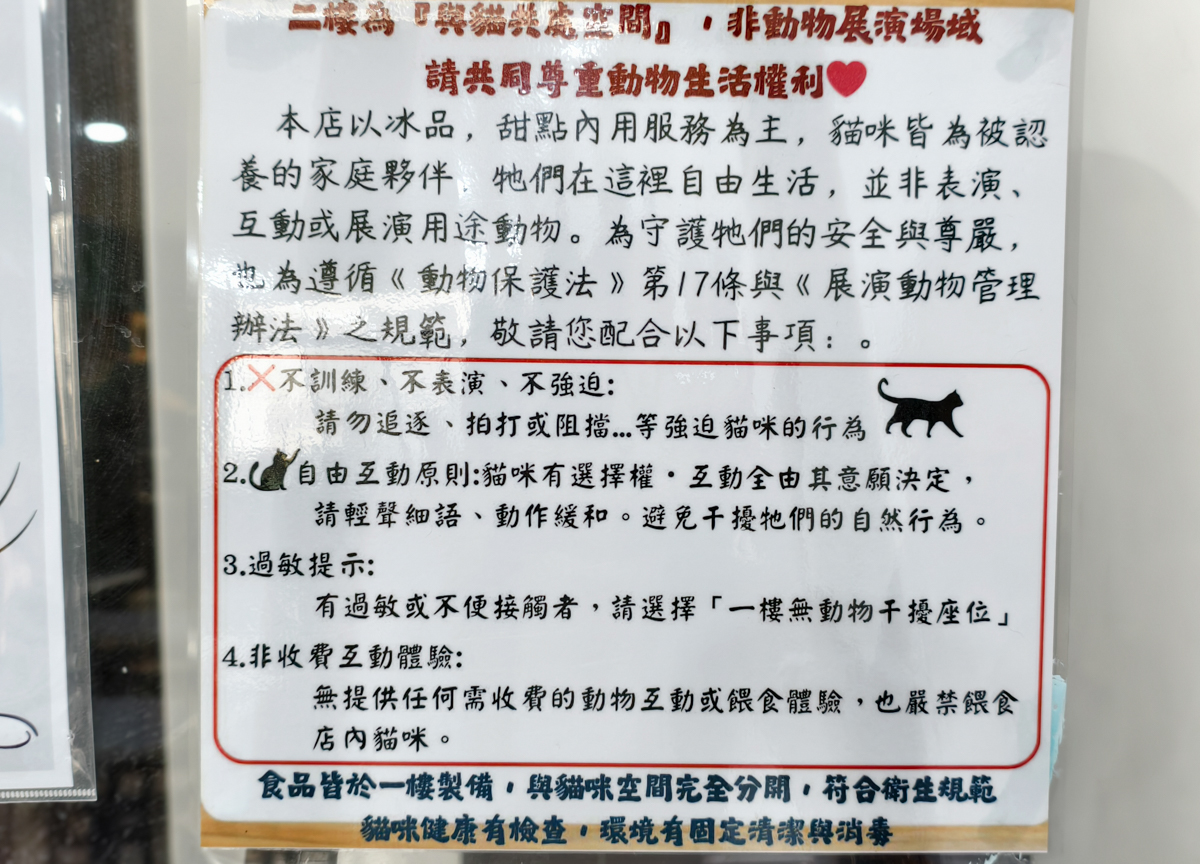 二樓為『與貓共處空間』，非動物展演場域
請共同尊重動物生活權利
本店以冰品，甜點內用服務為主，貓咪皆為被認
養的家庭夥伴，牠們在這裡自由生活，並非表演、
互動或展演用途動物。為守護牠們的安全與尊嚴，
也為遵循《動物保護法》第17條與《展演動物管理
辦法》之規範，敬請您配合以下事項：。
1.❌不訓練、不表演、不強迫:
請勿追逐、拍打或阻擋...等強迫貓咪的行為
2.自由互動原則:貓咪有選擇權・互動全由其意願決定，
請輕聲細語、動作緩和。避免干擾牠們的自然行為。
3.過敏提示:
有過敏或不便接觸者，請選擇「一樓無動物干擾座位」
4.非收費互動體驗:
無提供任何需收費的動物互動或餵食體驗，也嚴禁餵食
店內貓咪。
食品皆於一樓製備，與貓咪空間完全分開，符合衛生規範
貓咪健康有檢查，環境有固定清潔與消毒